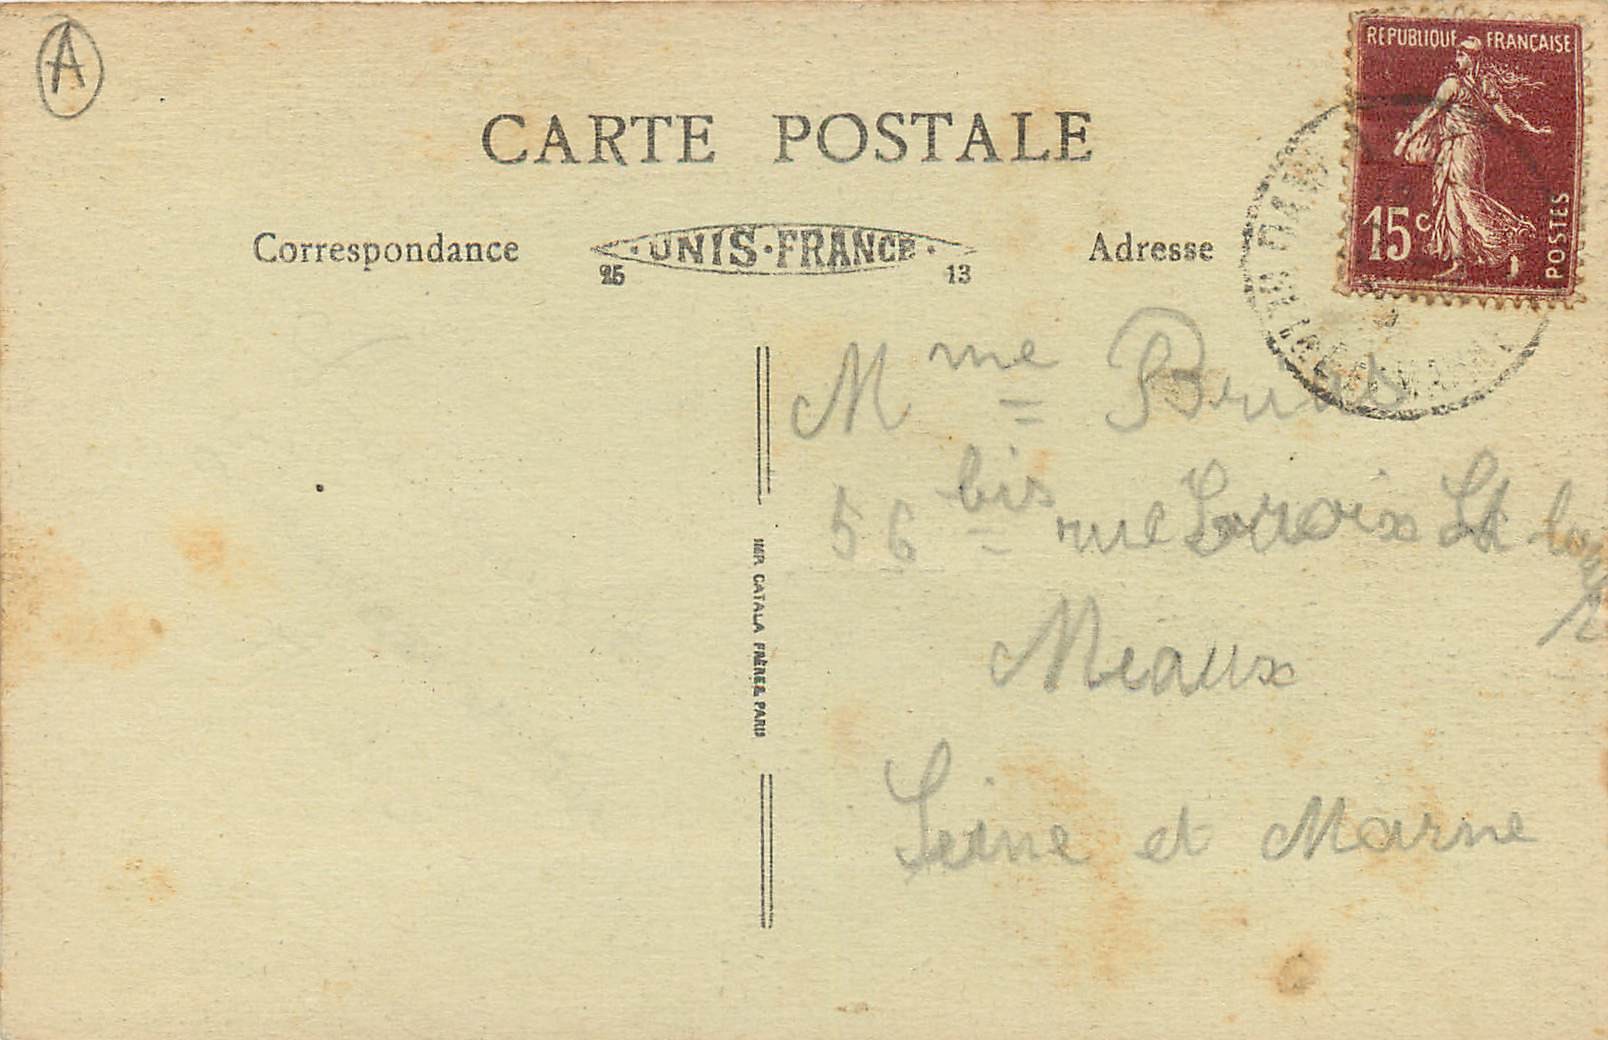 A
REPUBLIQUE FRANCAISE
15c
POSTES
CARTE POSTALE
Correspondance
UNIS-FRANCE
25 13
Adresse
IMP. CATALA FRÈRES, PARIS
Mme
56 bis rue St
Meaux
Seine et Marne